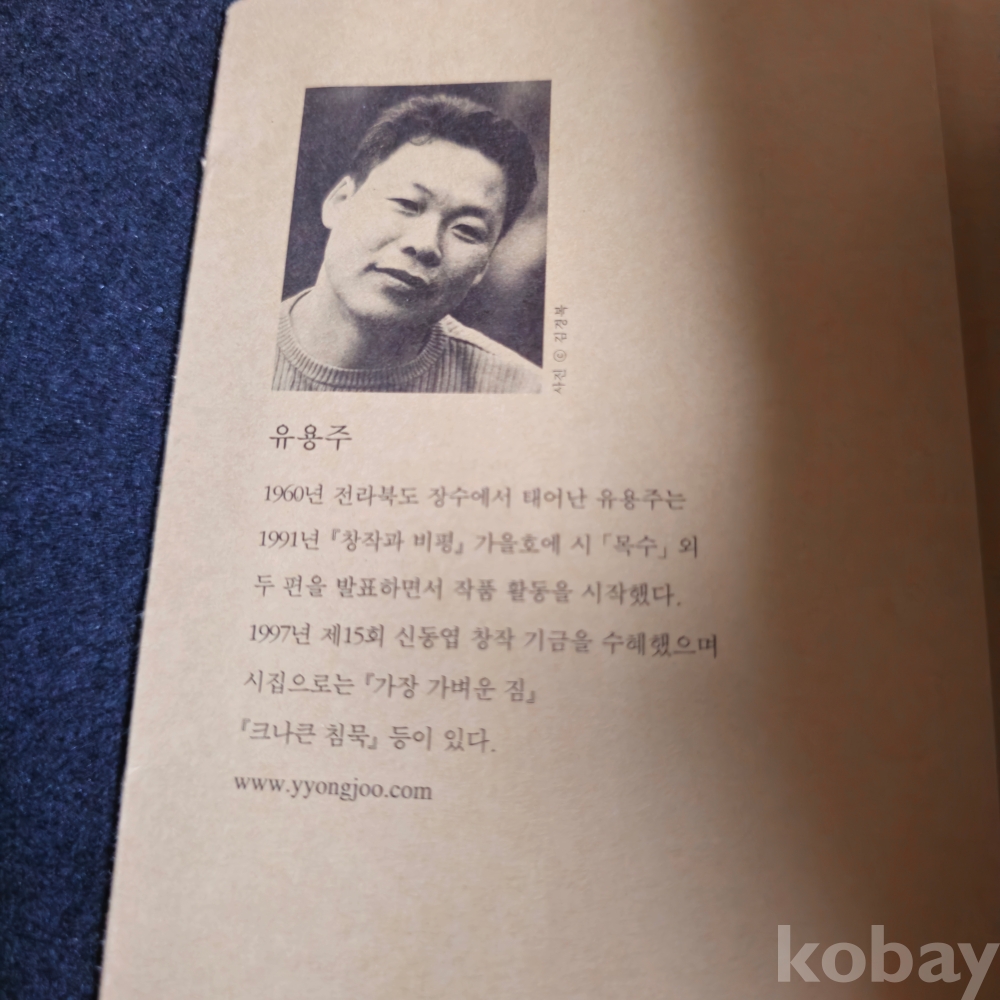 사진 ⓒ 김경복
유용주
1960년 전라북도 장수에서 태어난 유용주는
1991년 『창작과 비평』 가을호에 시 「목수」 외
두 편을 발표하면서 작품 활동을 시작했다.
1997년 제15회 신동엽 창작 기금을 수혜했으며
시집으로는 『가장 가벼운 짐』
『크나큰 침묵』 등이 있다.
www.yyongjoo.com
kobay